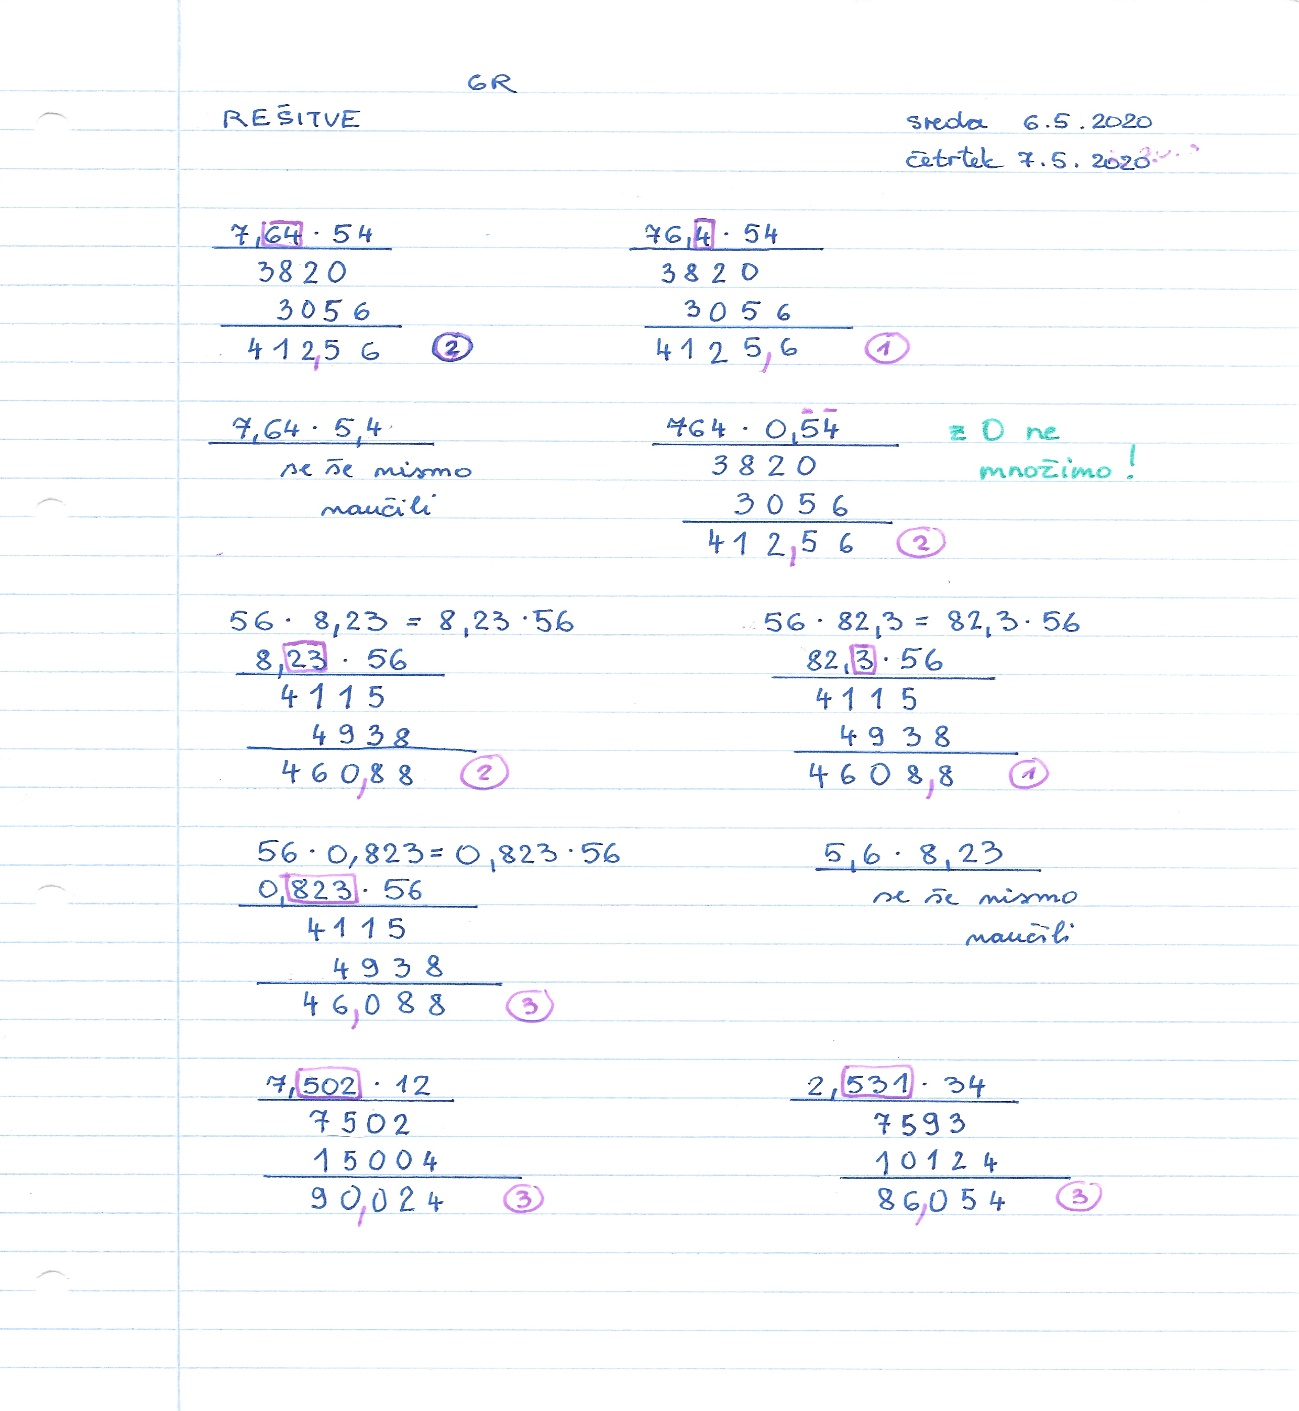 6R
REŠITVE
sreda 6.5.2020
četrtek 7.5.2020
7,64 · 54
3820
3056
412,56 2
76,4 · 54
3820
3056
4125,6 1
7,64 · 5,4
se še nismo
naučili
764 · 0,54
3820
3056
412,56 2
z 0 ne
množimo!
56 · 8,23 = 8,23 · 56
8,23 · 56
4115
4938
460,88 2
56 · 82,3 = 82,3 · 56
82,3 · 56
4115
4938
4608,8 1
56 · 0,823 = 0,823 · 56
0,823 · 56
4115
4938
46,088 3
5,6 · 8,23
se še nismo
naučili
7,502 · 12
7502
15004
90,024 3
2,531 · 34
7593
10124
86,054 3